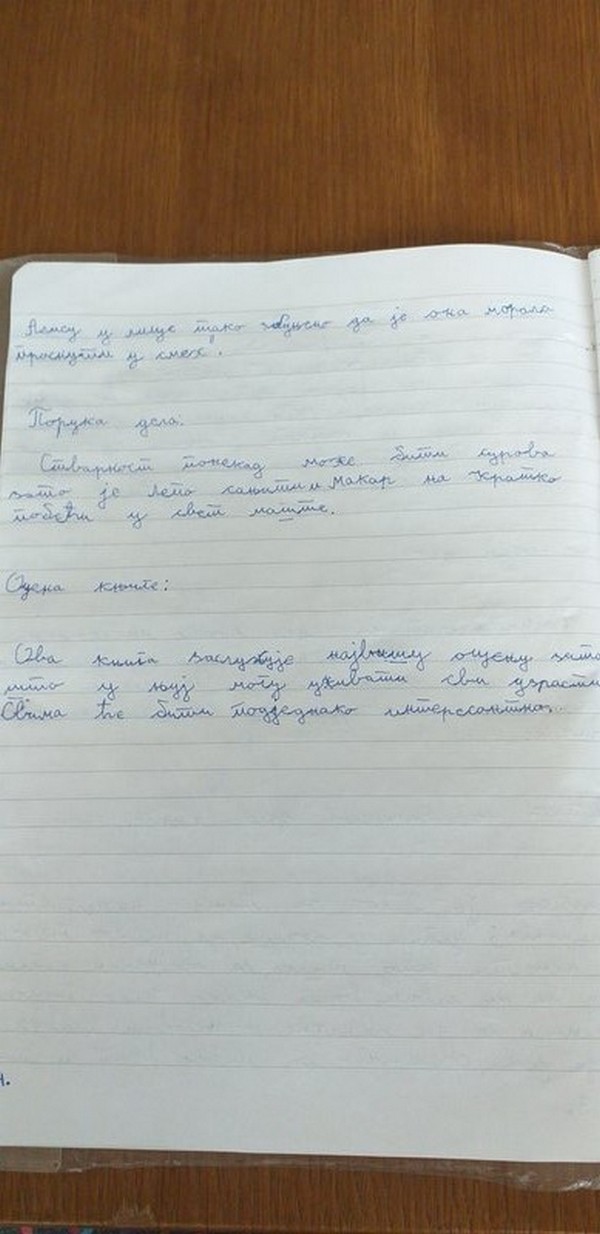 Алису у лице тако збуњено да је она морала
праснути у смех".
Порука дела:
Стварност понекад може бити сурова
зато је лепо сањати и макар на кратко
побећи у свет маште.
Оцена књиге:
Ова књига заслужује највишу оцену зато
што у њој могу уживати сви узрасти
Свима ће бити подједнако интересантна.